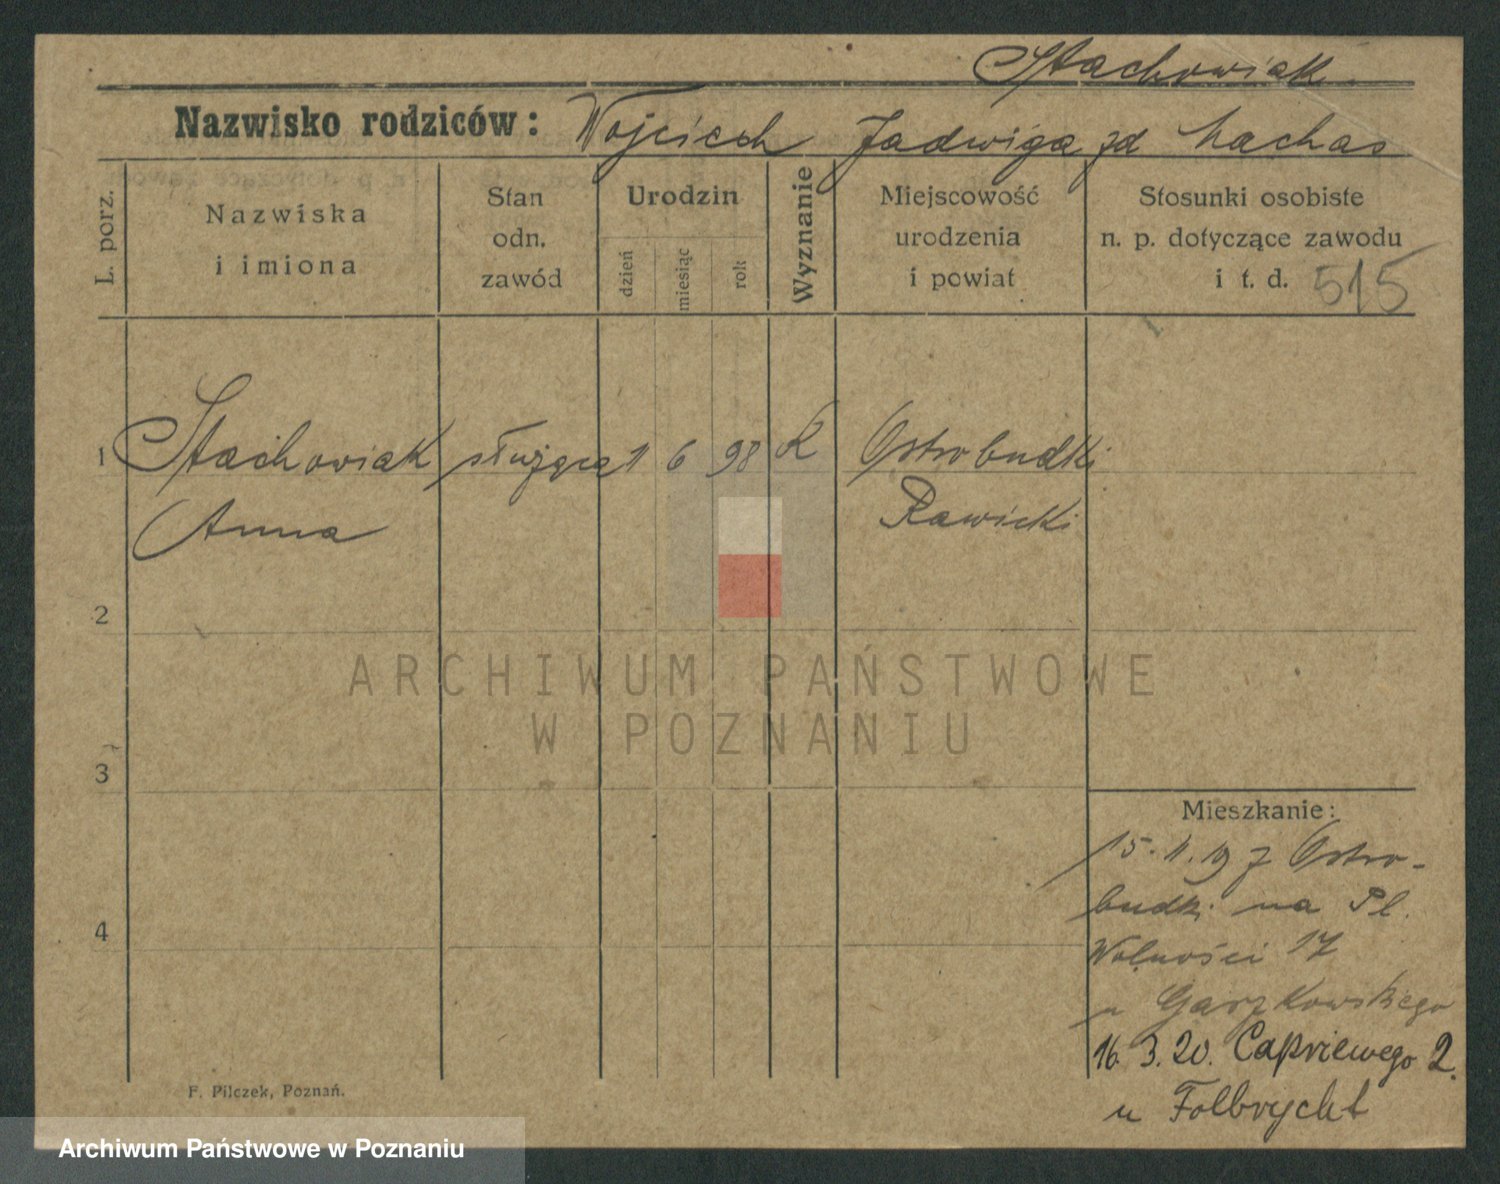 Stachowiak
Nazwisko rodziców: Wojciech Jadwiga zd Machas
L. porz.
Nazwiska
i imiona
Stan
odn.
zawód
Urodzin
dzień
miesiąc
rok
Wyznanie
Miejscowość
urodzenia
i powiat
Stosunki osobiste
n. p. dotyczące zawodu
i t. d. 515
1 Stachowiak służąca 11 6 98 K Ostrobudki
Anna Rawicki
2
ARCHIWUM PAŃSTWOWE
W POZNANIU
3
Mieszkanie:
15. 11. 19 z Ostro-
budki na Pl.
4
Wolności 17
u Garzkowskiego
16. 3. 20. Capriewego 2.
u Folbrycht
F. Pilczek, Poznań.
Archiwum Państwowe w Poznaniu